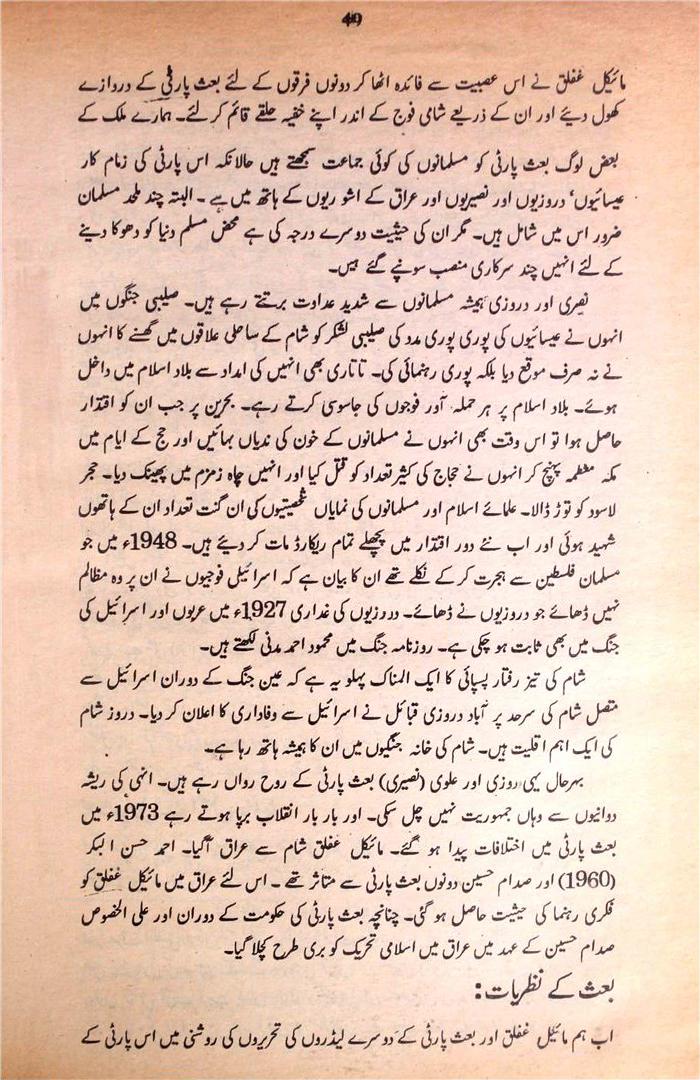 49
مائیکل عفلق نے اس عصبیت سے فائدہ اٹھا کر دونوں فرقوں کے لئے بعث پارٹی کے دروازے
کھول دیئے اور ان کے ذریعے شامی فوج کے اندر اپنے خفیہ حلقے قائم کر لئے۔ ہمارے ملک کے
بعض لوگ بعث پارٹی کو مسلمانوں کی کوئی جماعت سمجھتے ہیں حالانکہ اس پارٹی کی زمام کار
عیسائیوں، دروزیوں اور نصیریوں اور عراق کے اشوریوں کے ہاتھ میں ہے۔ البتہ چند ملحد مسلمان
ضرور اس میں شامل ہیں۔ مگر ان کی حیثیت دوسرے درجہ کی ہے محض مسلم دنیا کو دھوکا دینے
کے لئے انہیں چند سرکاری منصب سونپے گئے ہیں۔
نصری اور دروزی ہمیشہ مسلمانوں سے شدید عداوت برتتے رہے ہیں۔ صلیبی جنگوں میں
انہوں نے عیسائیوں کی پوری پوری مدد کی صلیبی لشکر کو شام کے ساحلی علاقوں میں گھسنے کا انہوں
نے نہ صرف موقع دیا بلکہ پوری رہنمائی کی۔ تاتاری بھی انہیں کی امداد سے بلاد اسلام میں داخل
ہوئے۔ بلاد اسلام پر ہر حملہ آور فوجوں کی جاسوسی کرتے رہے۔ بحرین پر جب ان کو اقتدار
حاصل ہوا تو اس وقت بھی انہوں نے مسلمانوں کے خون کی ندیاں بہائیں اور حج کے ایام میں
مکہ معظمہ پہنچ کر انہوں نے حجاج کی کثیر تعداد کو قتل کیا اور انہیں چاہ زمزم میں پھینک دیا۔ حجر
لاسود کو توڑ ڈالا۔ علمائے اسلام اور مسلمانوں کی نمایاں شخصیتوں کی ان گنت تعداد ان کے ہاتھوں
شہید ہوئی اور اب نئے دور اقتدار میں پچھلے تمام ریکارڈ مات کر دیئے ہیں۔ 1948ء میں جو
مسلمان فلسطین سے ہجرت کر کے نکلے تھے ان کا بیان ہے کہ اسرائیلی فوجیوں نے ان پر وہ مظالم
نہیں ڈھائے جو دروزیوں نے ڈھائے۔ دروزیوں کی غداری 1927ء میں عربوں اور اسرائیل کی
جنگ میں بھی ثابت ہو چکی ہے۔ روزنامہ جنگ میں محمود احمد مدنی لکھتے ہیں۔
شام کی تیز رفتار پسپائی کا ایک المناک پہلو یہ ہے کہ عین جنگ کے دوران اسرائیل سے
متصل شام کی سرحد پر آباد دروزی قبائل نے اسرائیل سے وفاداری کا اعلان کر دیا۔ دروز شام
کی ایک اہم اقلیت ہیں۔ شام کی خانہ جنگیوں میں ان کا ہمیشہ ہاتھ رہا ہے۔
بہرحال یہی دروزی اور علوی (نصیری) بعث پارٹی کے روح رواں رہے ہیں۔ انہی کی ریشہ
دوانیوں سے وہاں جمہوریت نہیں چل سکی۔ اور بار بار انقلاب برپا ہوتے رہے 1973ء میں
بعث پارٹی میں اختلافات پیدا ہو گئے۔ مائیکل عفلق شام سے عراق آگیا۔ احمد حسن البکر
(1960) اور صدام حسین دونوں بعث پارٹی سے متاثر تھے۔ اس لئے عراق میں مائیکل عفلق کو
فکری رہنما کی حیثیت حاصل ہو گئی۔ چنانچہ بعث پارٹی کی حکومت کے دوران اور علی الخصوص
صدام حسین کے عہد میں عراق میں اسلامی تحریک کو بری طرح کچلا گیا۔
بعث کے نظریات:
اب ہم مائیکل عفلق اور بعث پارٹی کے دوسرے لیڈروں کی تحریروں کی روشنی میں اس پارٹی کے